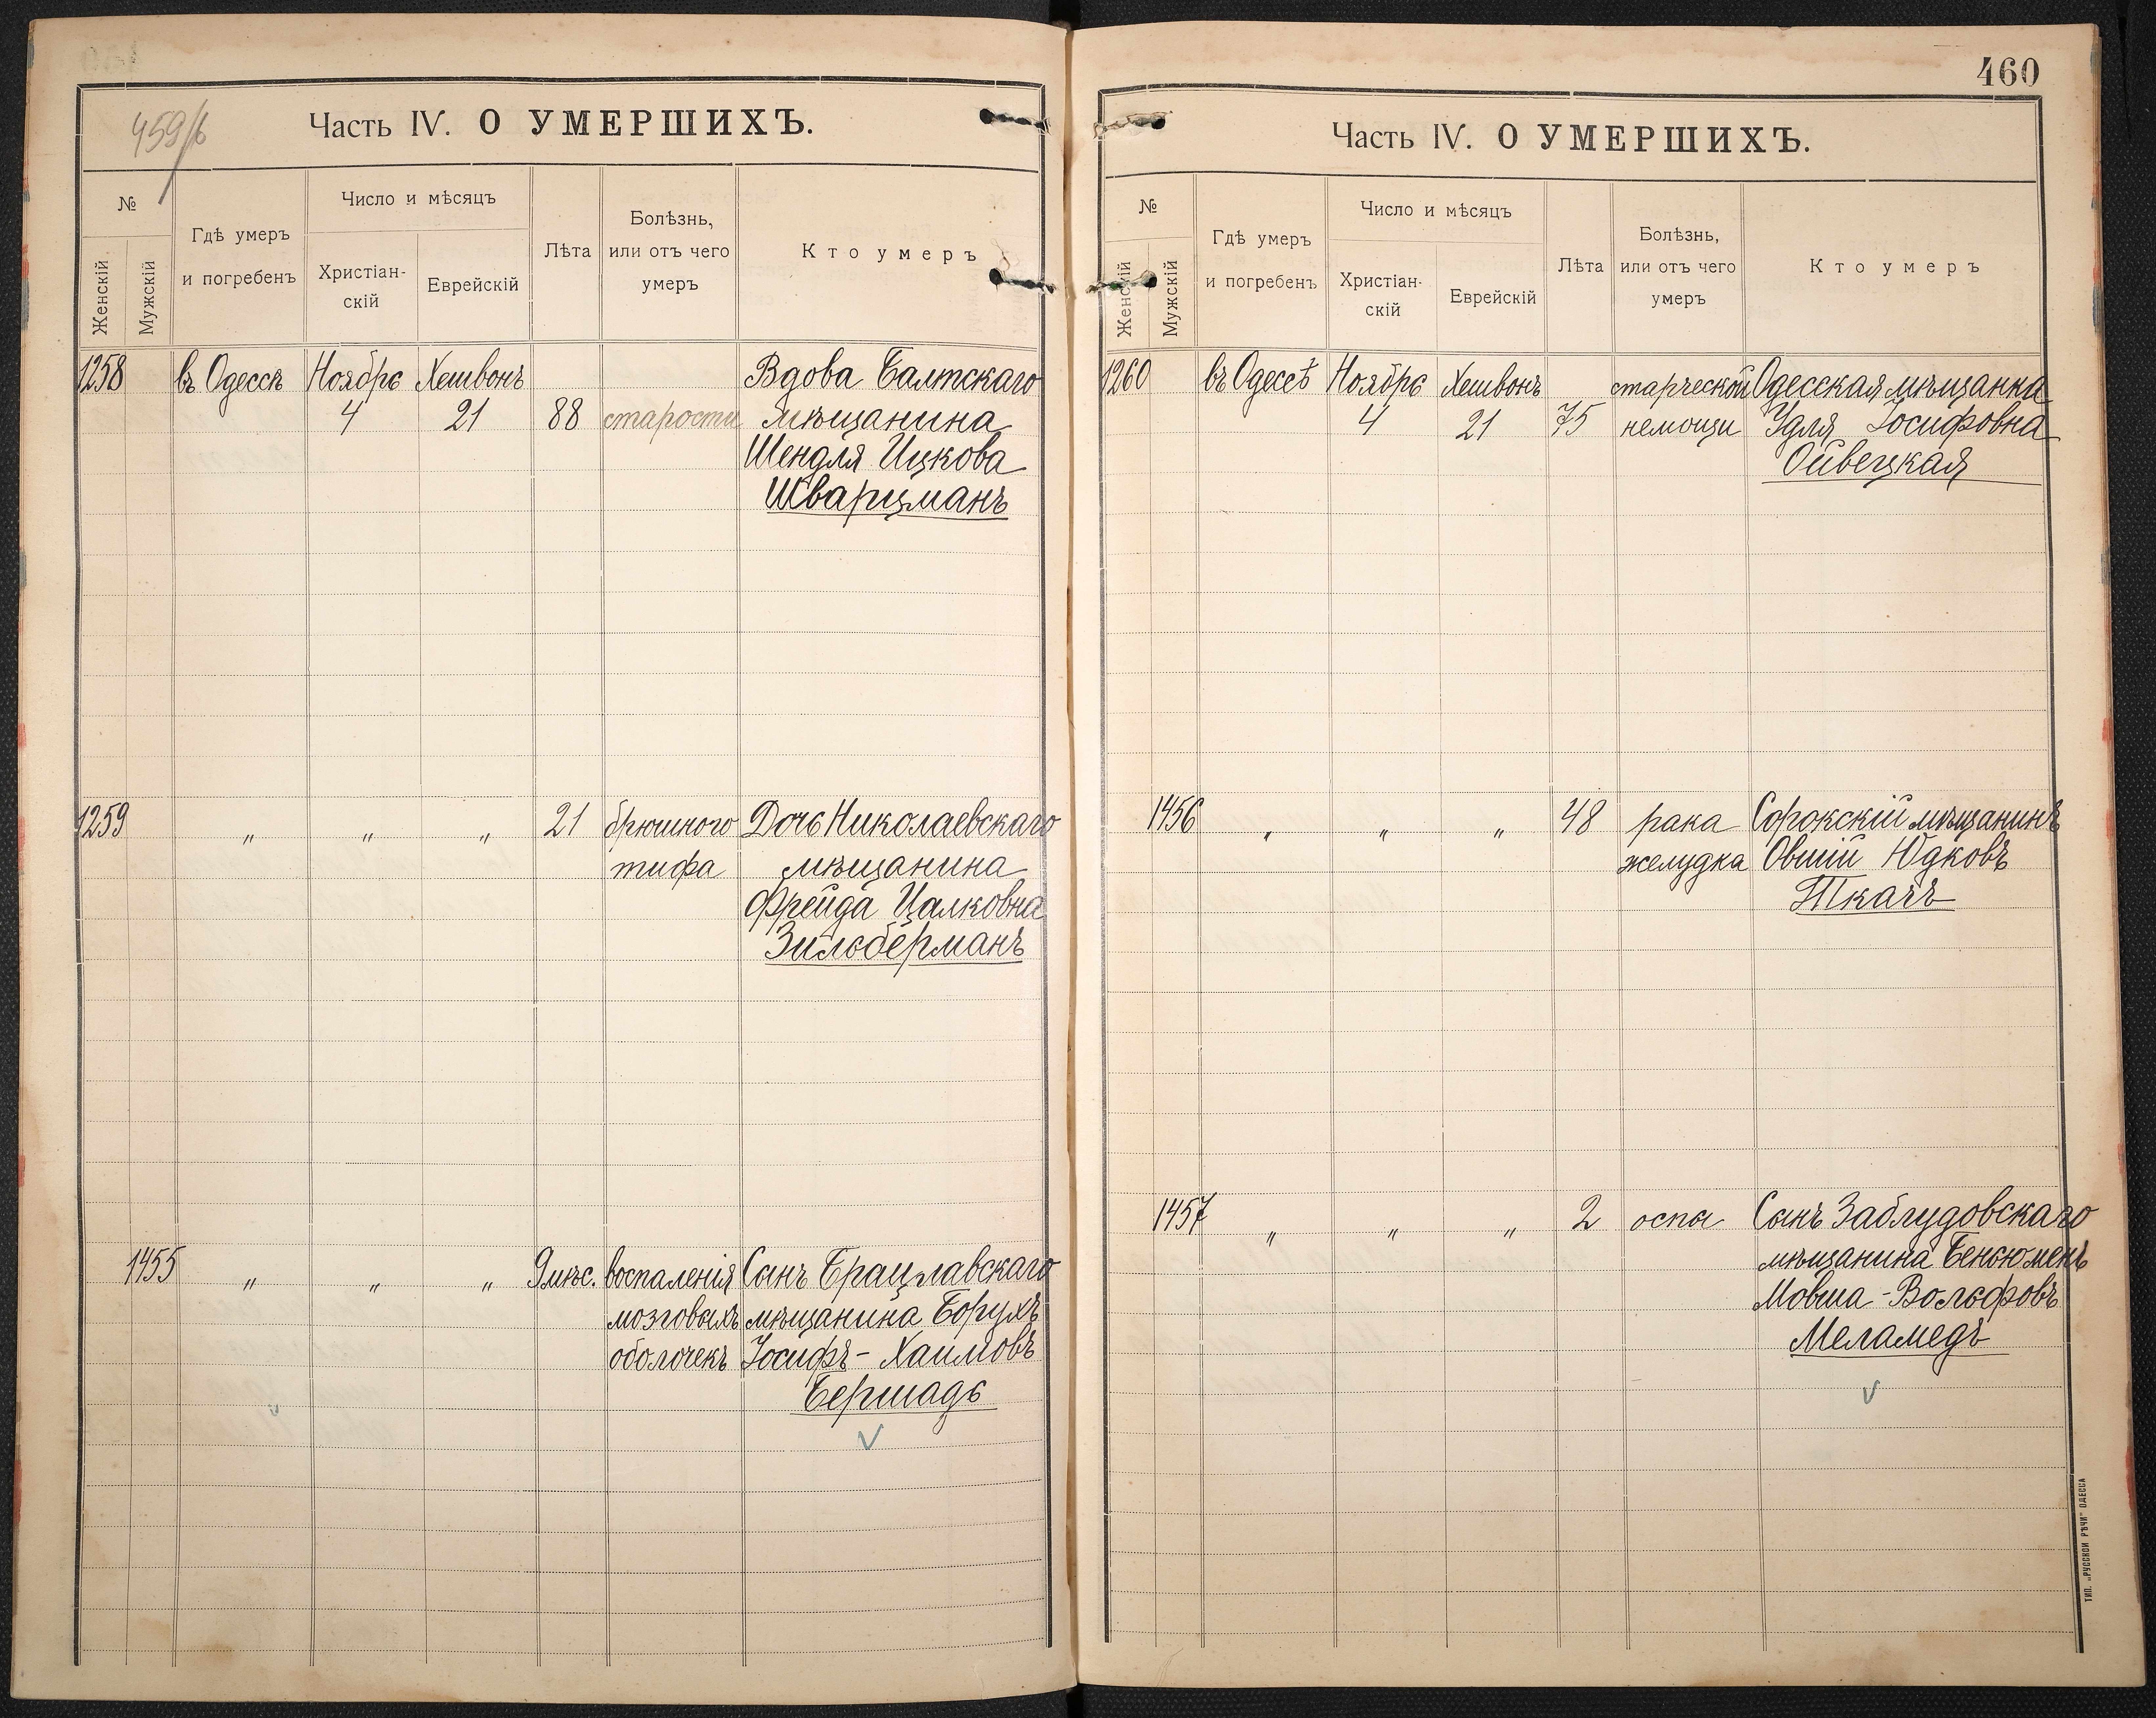 459/б
Часть IV. О УМЕРШИХЪ.
№
Женскій
Мужскій
Гдѣ умеръ
и погребенъ
Число и мѣсяцъ
Христіан-
скій
Еврейскій
Лѣта
Болѣзнь,
или отъ чего
умеръ
Кто умеръ
1258 въ Одессѣ Ноября Хешвонъ Вдова Балтскаго
4 21 88 старости мѣщанина
Шендля Ицкова
Шварцманъ
1259 „ „ „ 21 брюшного Дочь Николаевскаго
тифа мѣщанина
Фрейда Цалковна
Зильберманъ
1455 „ „ „ 9 мѣс. воспаленія Сынъ Брацлавскаго
мозговыхъ мѣщанина Борухъ
оболочекъ Іосифъ - Хаимовъ
Бершадь
460
Часть IV. О УМЕРШИХЪ.
№
Женскій
Мужскій
Гдѣ умеръ
и погребенъ
Число и мѣсяцъ
Христіан-
скій
Еврейскій
Лѣта
Болѣзнь,
или отъ чего
умеръ
Кто умеръ
1260 въ Одессѣ Ноября Хешвонъ старческой Одесская мѣщанка
4 21 75 немощи Удля Іосифовна
Ойвецкая
1456 „ „ „ 48 рака Сорокскій мѣщанинъ
желудка Овшій Юдковъ
Ткачъ
1457 „ „ „ 2 оспы Сынъ Заблудовскаго
мѣщанина Беньюменъ
Мовша - Вольфовъ
Меламедъ
ТИП. „РУССКОЙ РѢЧИ" ОДЕССА